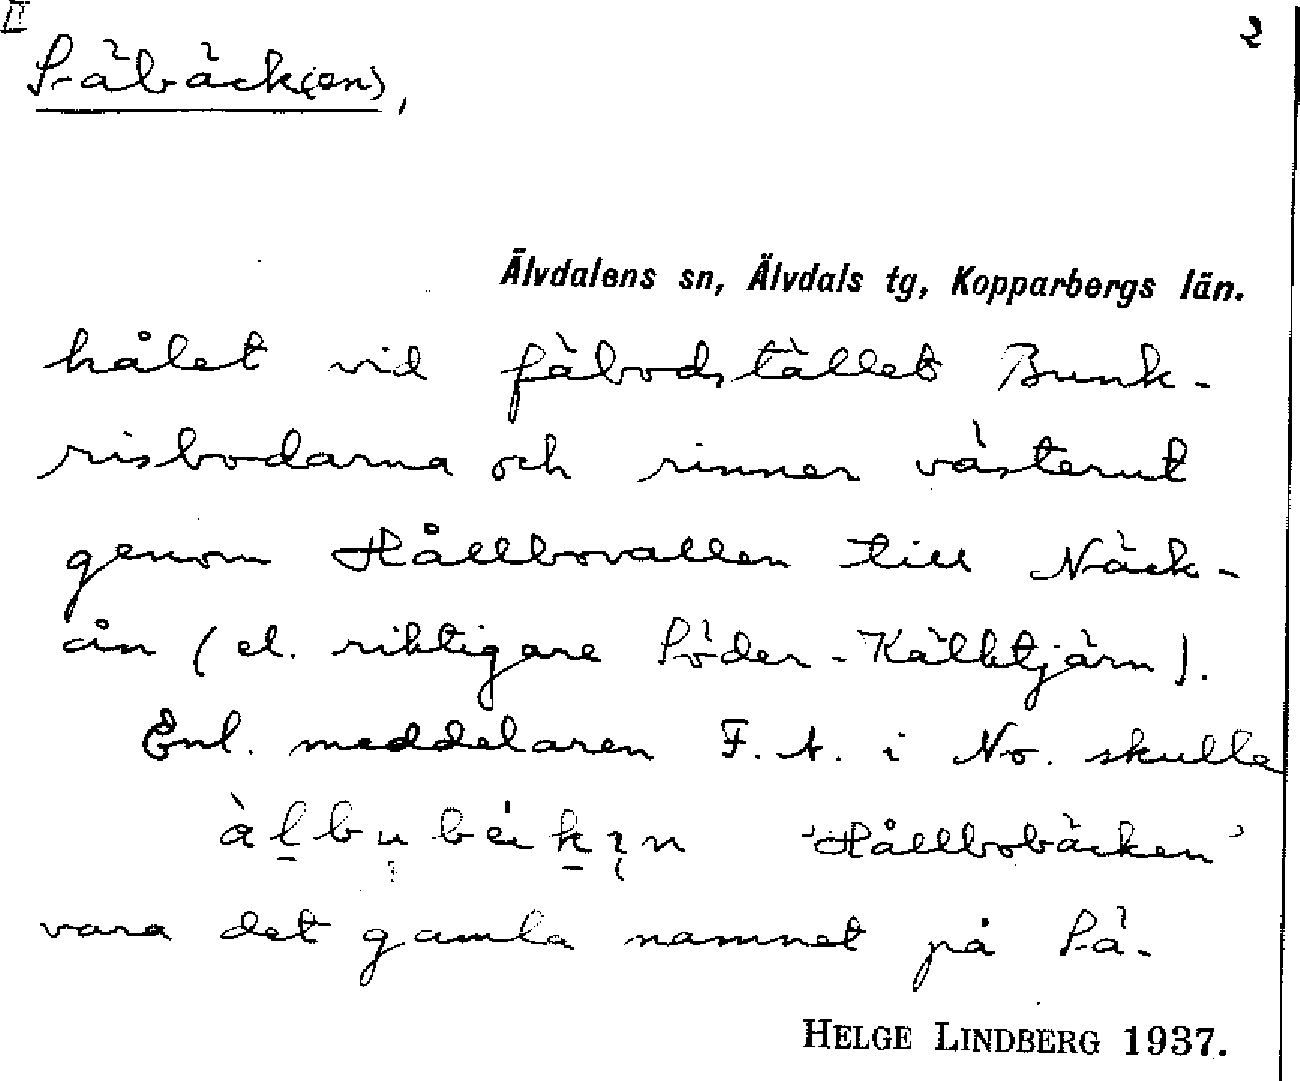 II
2
Säbäck(en),
Älvdalens sn, Älvdals tg, Kopparbergs län.
hålet vid fäbodstället Bunk-
risbodarna och rinner västerut
genom Hållbovallen till Näck-
ån (el. riktigare Söder-Kälktjärn).
Enl. meddelaren F. A. i No. skulle
'Hållbobäcken'
vara det gamla namnet på Sä-
HELGE LINDBERG 1937.